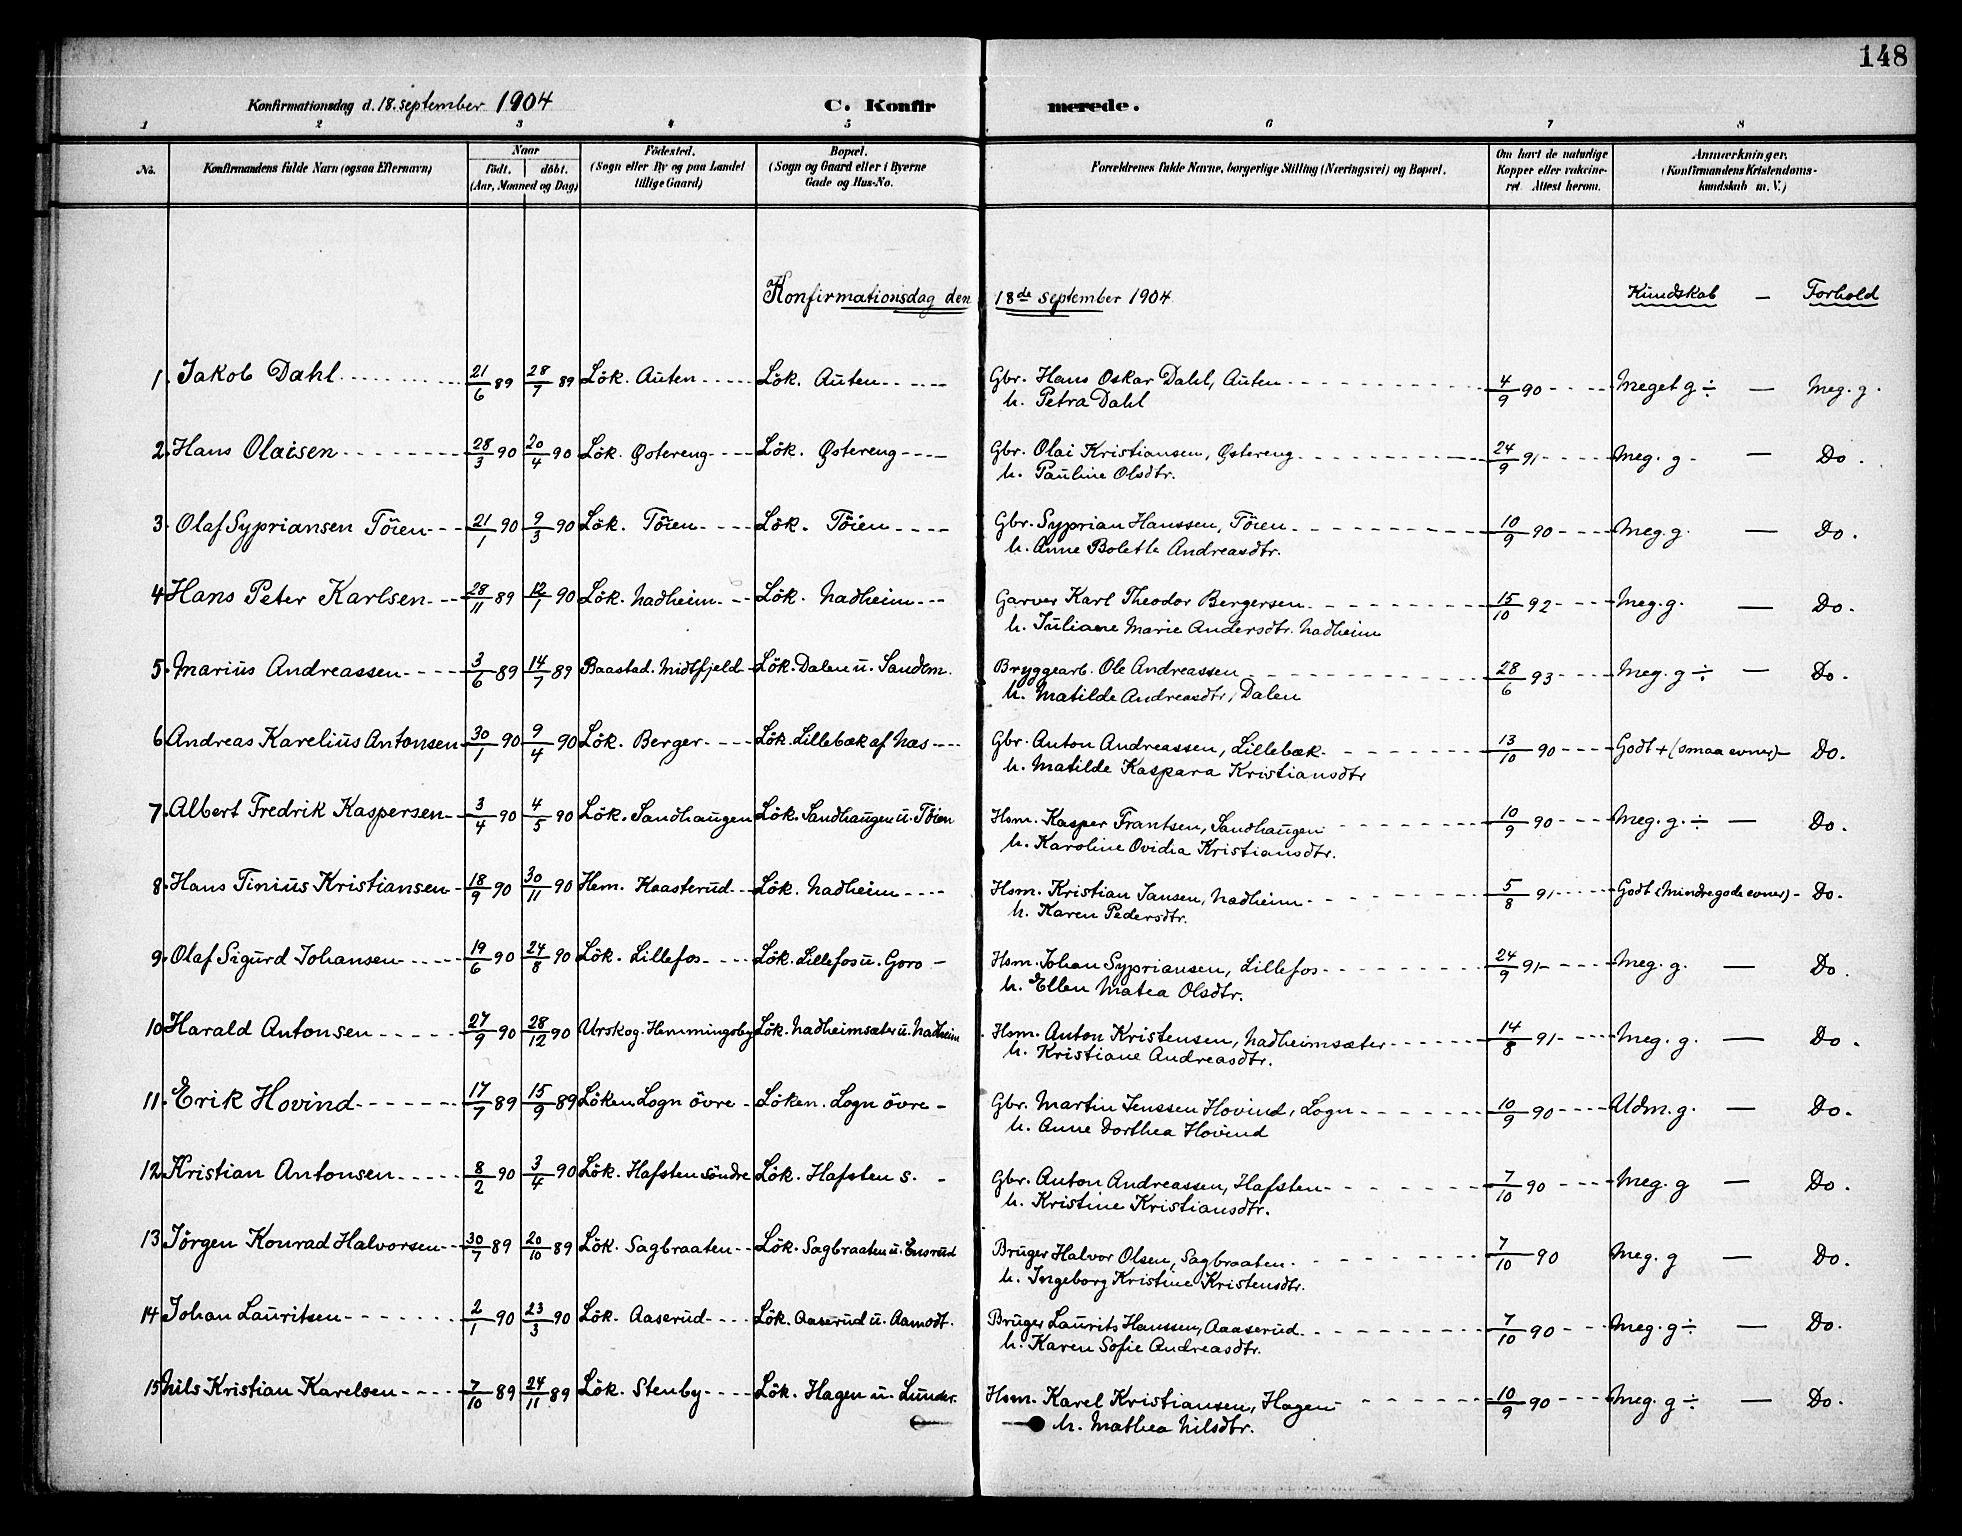 148
Konfirmationsdag d. 18. september 1904 C. Konfirmerede.
1 2 3 4 5 6 7 8
No. Konfirmandens fulde Navn (ogsaa Efternavn) Naar födt. döbt. (Aar, Maaned og Dag) Födested. (Sogn eller By og paa Landet tillige Gaard) Bopæl. (Sogn og Gaard eller i Byerne Gade og Hus-No. Forældrenes fulde Navne, borgerlige Stilling (Næringsvei) og Bopæl. Om havt de naturlige Kopper eller vakcineret. Attest herom. Anmærkninger. (Konfirmandens Kristendomskundskab m. V.)
Konfirmationsdag den 18de september 1904 Kundskab — Forhold
1. Jakob Dahl 21/6 89 28/7 89 Lök. Auten Lök. Auten Gbr. Hans Oskar Dahl, Auten 4/9 90 Meget g ÷ — Meg. g.
h. Petra Dahl
2. Hans Olaisen 28/3 90 20/4 90 Lök. Østereng Lök. Østereng Gbr. Olai Kristiansen, Østereng 24/9 91 Meg. g. — Do.
h. Pauline Olsdtr.
3. Olaf Sypriansen Töien 21/1 90 9/3 90 Lök. Töien Lök. Töien Gbr. Syprian Hanssen, Töien 10/9 90 Meg. g. — Do.
h. Anne Bolette Andreasdtr.
4 Hans Peter Karlsen 28/11 89 12/1 90 Lök. Nadheim Lök. Nadheim Garver Karl Theodor Bergersen 15/10 92 Meg. g. — Do.
h. Juliane Marie Andersdtr. Nadheim
5. Marius Andreassen 3/6 89 14/7 89 Baastad. Midtfjeld Lök. Dalen u. Sandem. Bryggearb. Ole Andreassen 28/6 93 Meg. g ÷ — Do.
h. Matilde Andreasdtr, Dalen
6. Andreas Karelius Antonsen 30/1 90 9/4 90 Lök. Berger Lök. Lillebæk af Næs Gbr. Anton Andreassen, Lillebæk. 13/10 90 Godt + (smaa evner) — Do.
h. Matilde Kaspara Kristiansdtr
7. Albert Fredrik Kaspersen 3/4 90 4/5 90 Lök. Sandhaugen Lök. Sandhaugen u. Töien Hsm. Kasper Frantsen, Sandhaugen 10/9 90 Meg. g. ÷ — Do.
h. Karoline Ovidia Kristiansdtr.
8. Hans Tinius Kristiansen 18/9 90 30/11 90 Hem. Kaasterud Lök. Nadheim Hsm. Kristian Jansen, Nadheim 5/8 91 Godt (mindre gode evner) — Do.
h. Karen Pedersdtr.
9. Olaf Sigurd Johansen 19/6 90 24/8 90 Lök. Lillefos Lök. Lillefos u. Goro — Hsm. Johan Sypriansen, Lillefos 24/9 91 Meg. g. — Do.
h. Ellen Matea Olsdtr.
10. Harald Antonsen 27/9 90 28/12 90 Urskog. Hemmingsby Lök. Nadheimsæter u. Nadheim Hsm. Anton Kristensen, Nadheimsæter 14/8 91 Meg. g. — Do.
h. Kristiane Andreasdtr.
11. Erik Hovind 17/7 89 15/9 89 Löken Logn övre Löken. Logn övre Gbr. Martin Jenssen Hovind, Logn 10/9 90 Udm. g. — Do.
h. Anne Dorthea Hovind
12. Kristian Antonsen 8/2 90 3/4 90 Lök. Hafsten söndre Lök. Hafsten s. Gbr. Anton Andreassen, Hafsten 7/10 90 Meg. g — Do.
h. Kristine Kristiansdtr.
13 Jörgen Konrad Halvorsen 30/7 89 20/10 89 Lök. Sagbraaten Lök. Sagbraaten u. Ensrud Bruger Halvor Olsen, Sagbraaten. 7/10 90 Meg. g — Do.
h. Ingeborg Kristine Kristensdtr.
14 Johan Lauritsen 2/1 90 23/3 90 Lök. Aaserud Lök. Aaserud u. Aamodt. Bruger Laurits Hanssen, Aaaserud. 7/10 90 Meg. g ÷ — Do.
h. Karen Sofie Andreasdtr.
15 Nils Kristian Karelsen 7/10 89 24/11 89 Lök. Stenby Lök. Hagen u. Lunder. Hsm. Karel Kristiansen, Hagen 10/9 90 Meg. g ÷ — Do.
h. Mathea Nilsdtr.